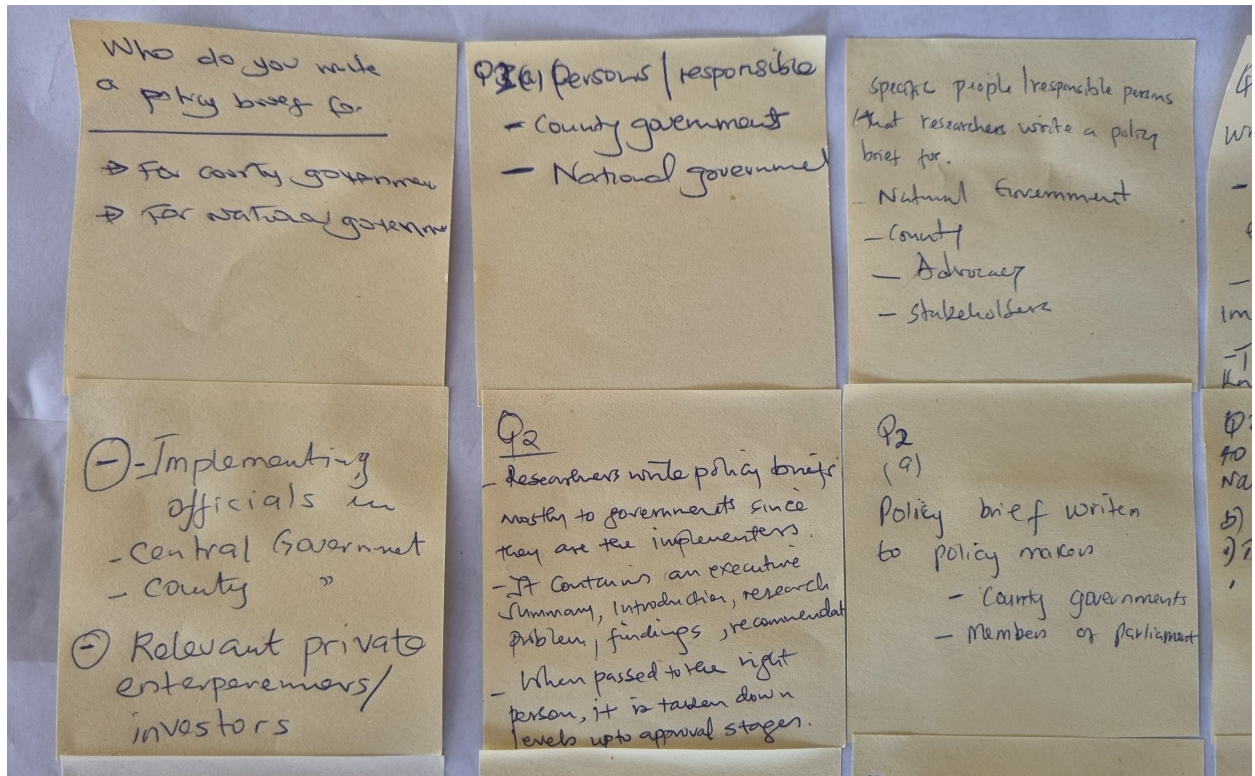 Who do you write
a policy brief for
→ For county governmen
→ For National governm
Q2(a) Persons / responsible
- County government
- National governme
specific people / responsible persons
that researchers write a policy
brief for.
- Natural Government
- County
- Advocacy
- Stakeholders
- Implementing
officials in
- Central Governmet
- County "
- Relevant private
enterperenuers/
investors
Q2
- Researchers write policy briefs
mostly to governments since
they are the implementers.
- It contains an executive
summary, introduction, research
problem, findings, recommendat
- When passed to the right
person, it is taken down
levels upto approval stages.
Q2
(a)
Policy brief writen
to policy makers
- County governments
- Members of parliament
Im
b)